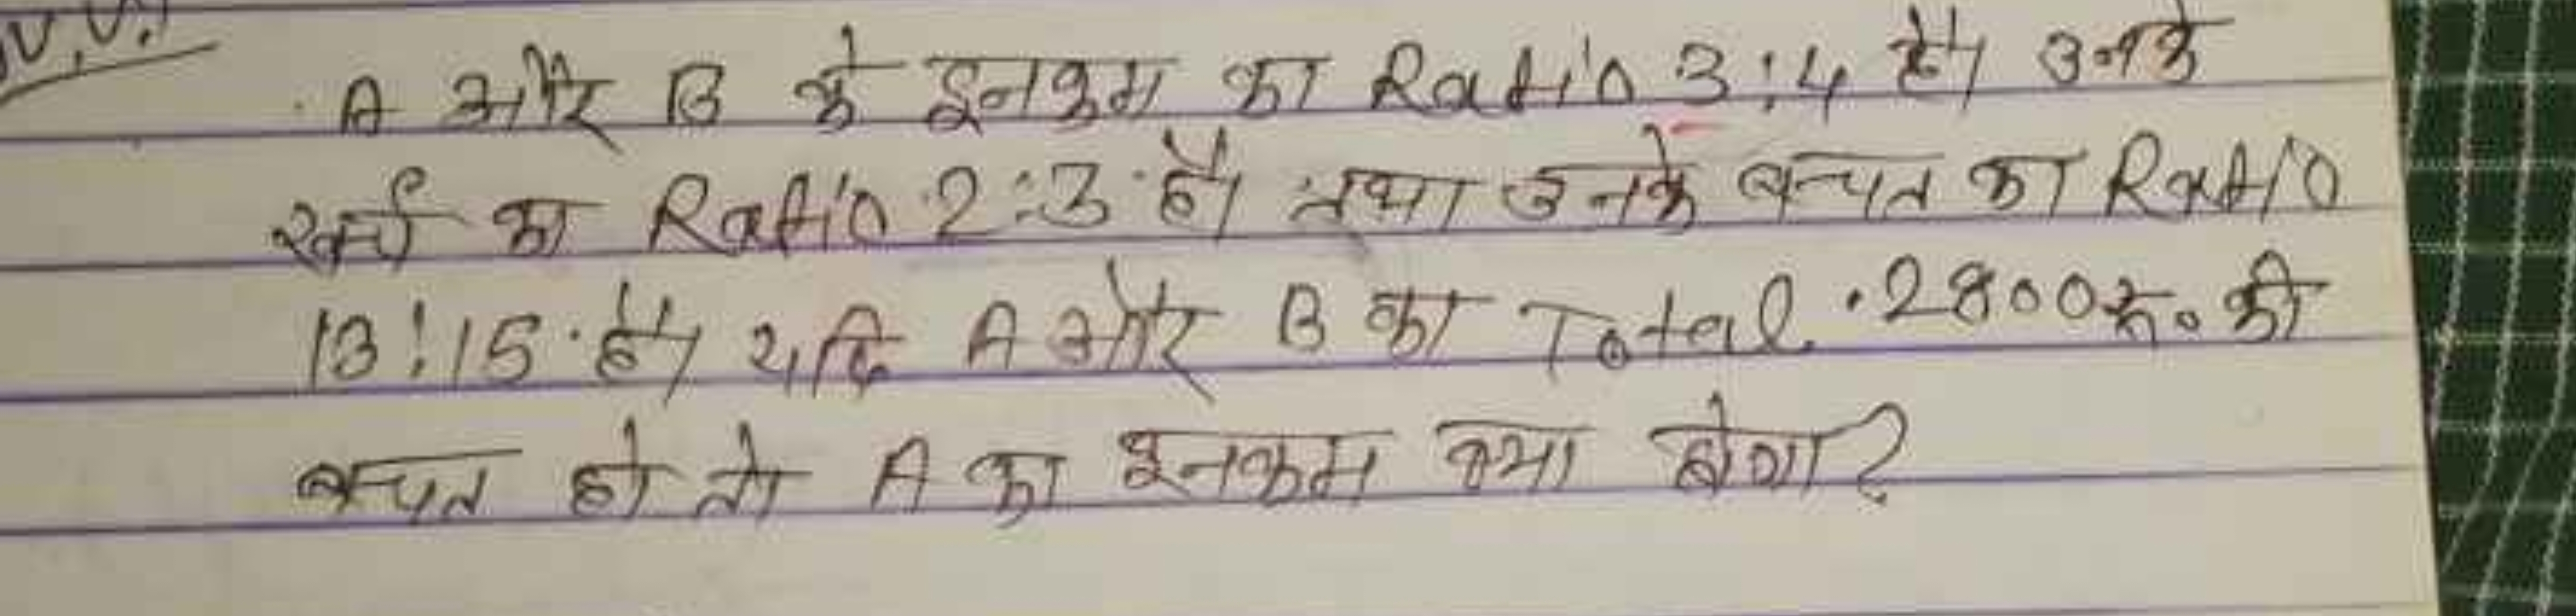 V.V.I
A और B के इनकम का Ratio 3:4 है। उनके
खर्च का Ratio 2:3 है। तथा उनके बचत का Ratio
13:15 है। यदि A और B का Total 2800रू० की
बचत हो तो A का इनकम क्या होगा?